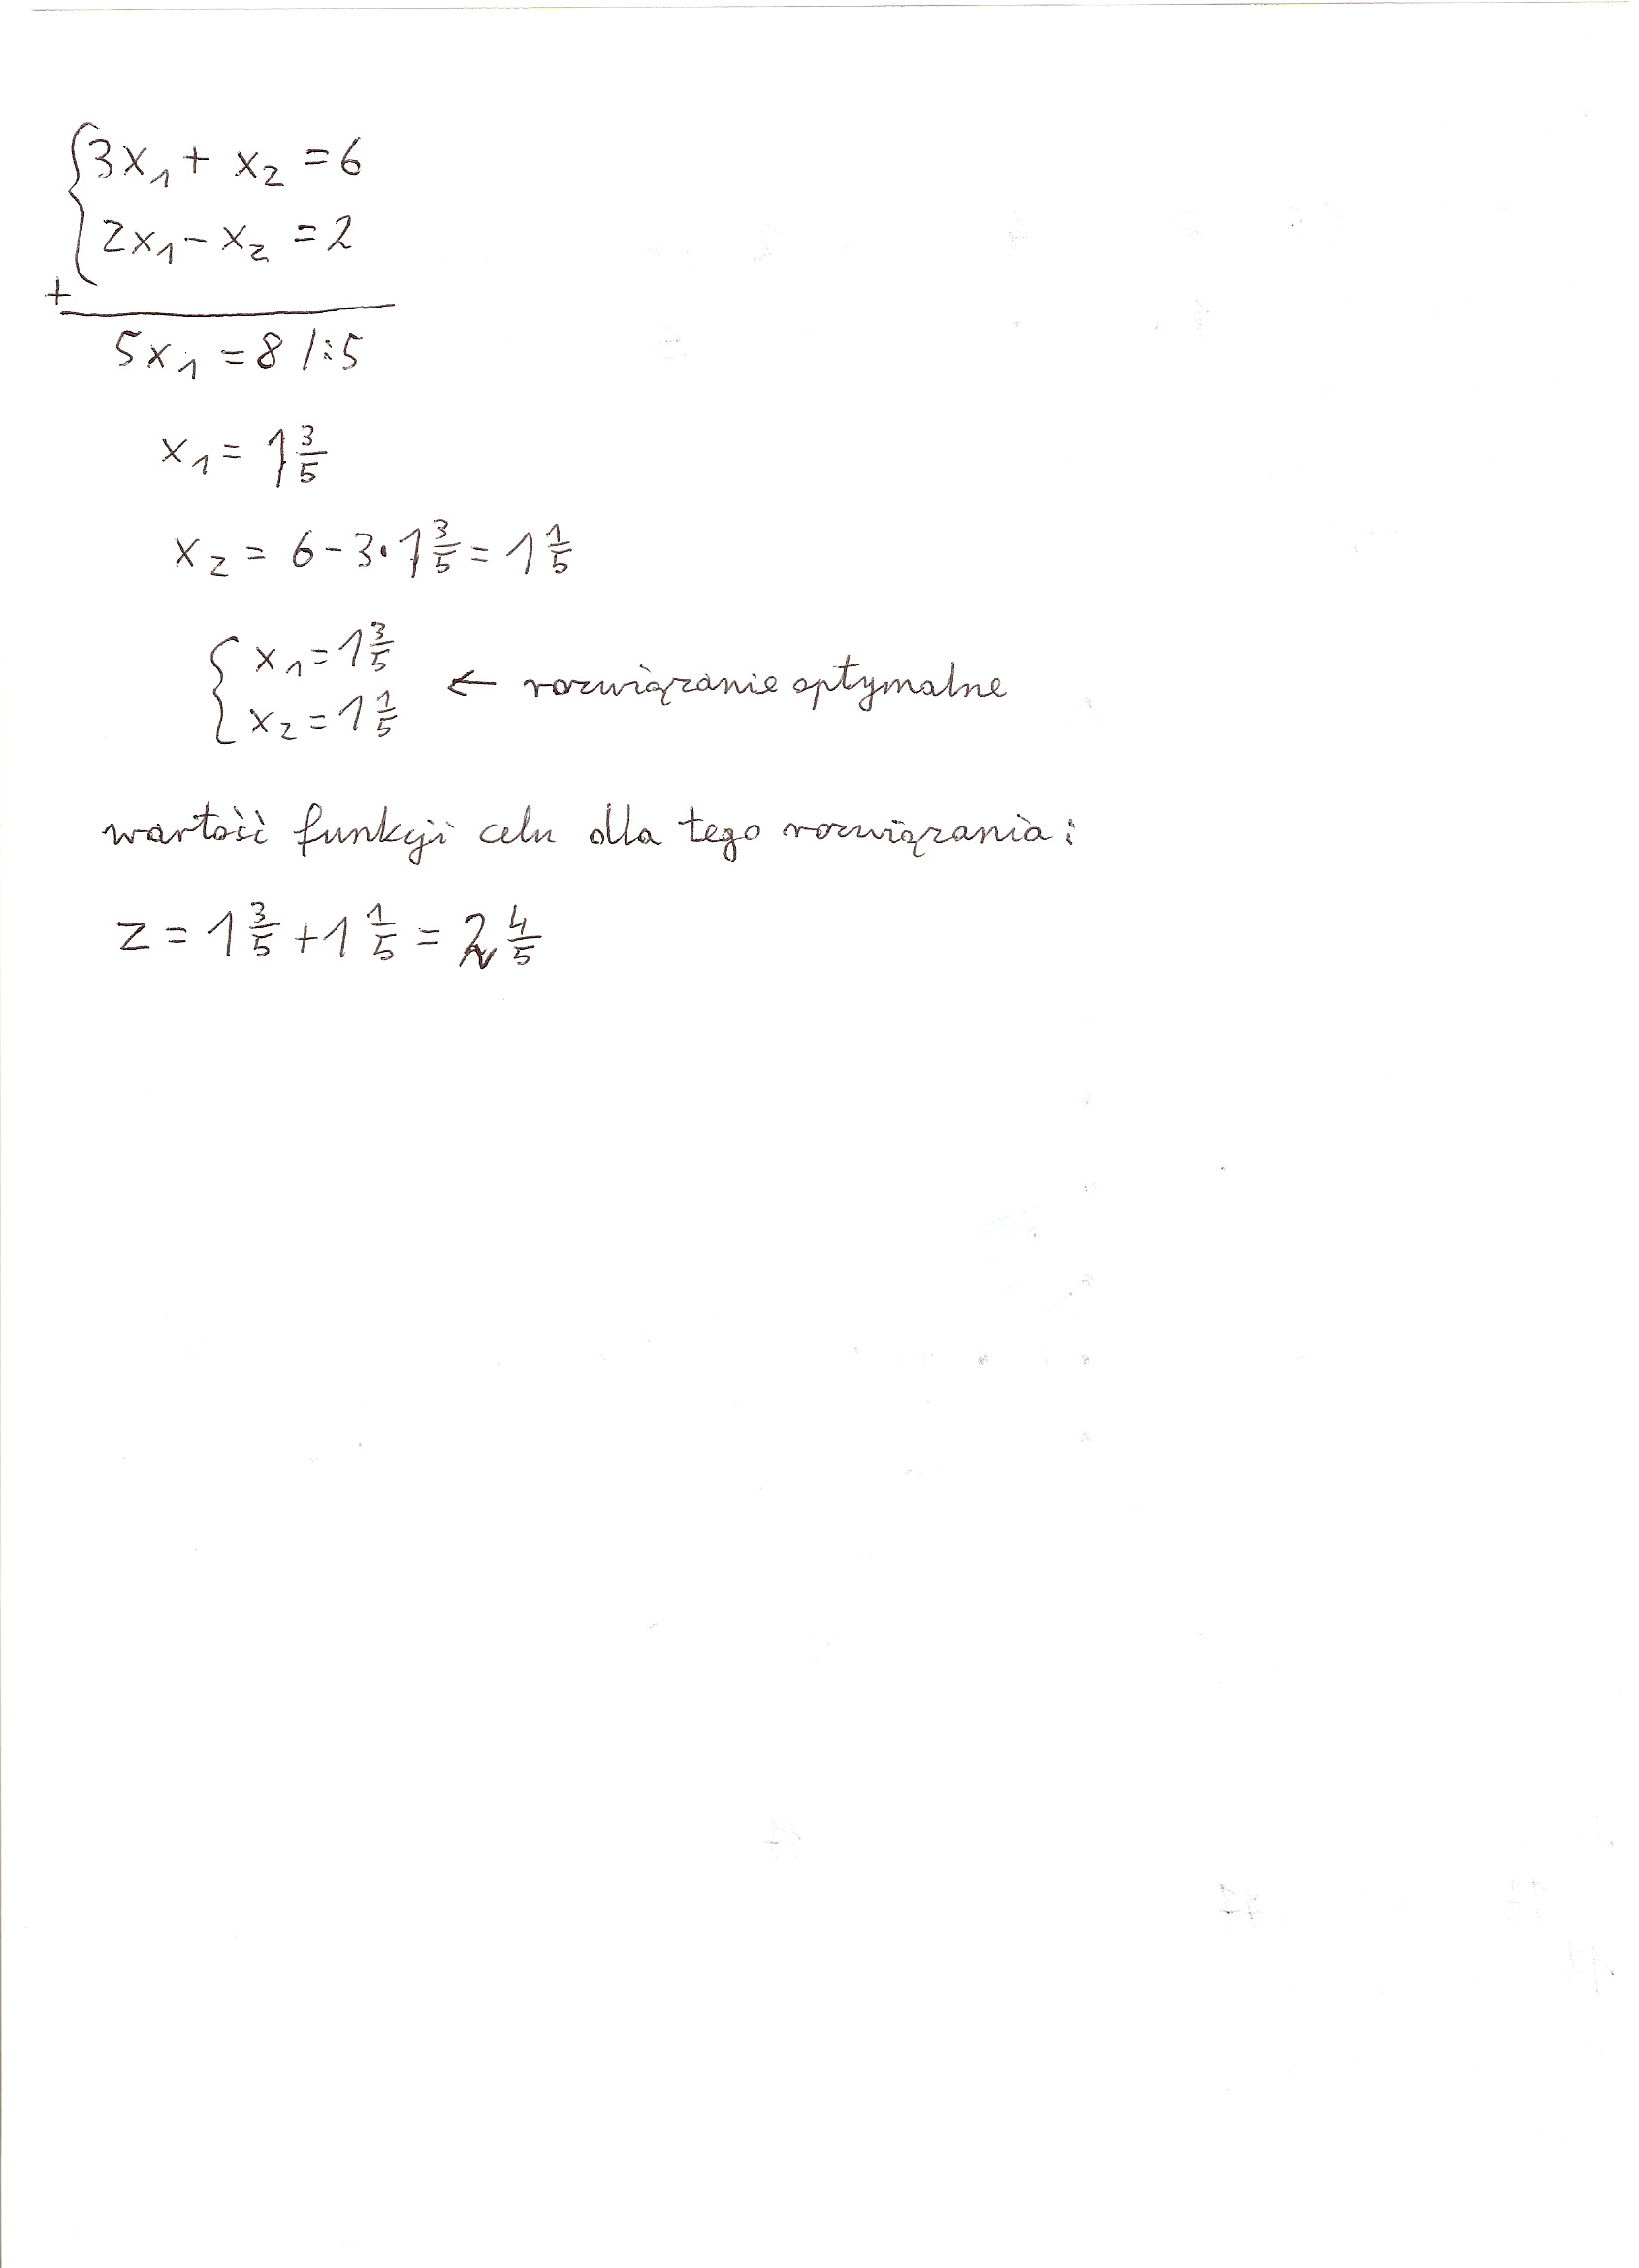 {3x₁ + x₂ = 6
2x₁ - x₂ = 2
+
5x₁ = 8 /:5
x₁ = 1 3/5
x₂ = 6 - 3 · 1 3/5 = 1 1/5
{x₁ = 1 3/5
x₂ = 1 1/5 ← rozwiązanie optymalne
wartość funkcji celu dla tego rozwiązania:
z = 1 3/5 + 1 1/5 = 2 4/5